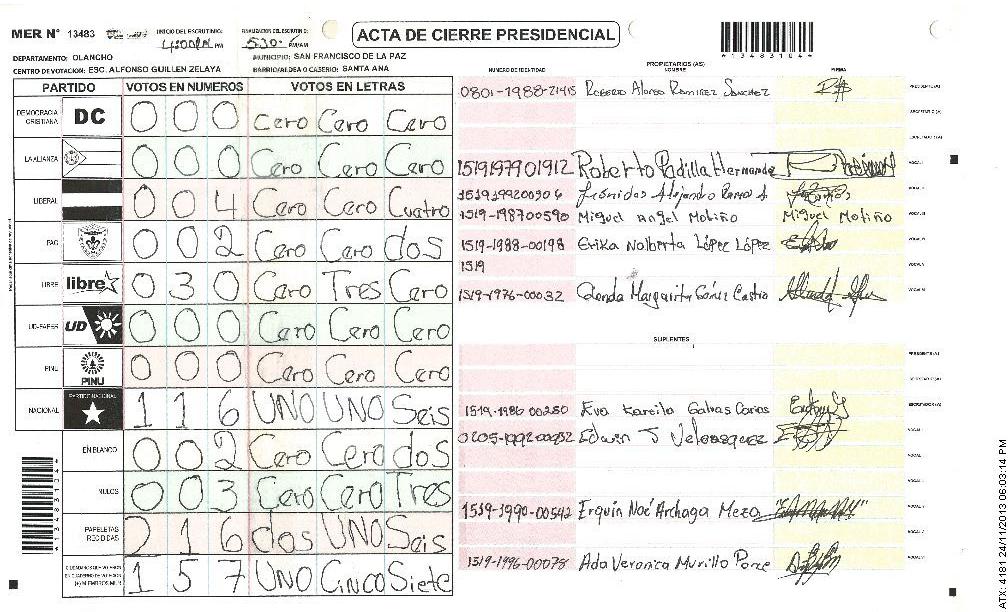 MER N° 13483
INICIO DEL ESCRUTINIO: 4:00PM PM
FINALIZACIÓN DEL ESCRUTINIO: 5:30 PM/AM
ACTA DE CIERRE PRESIDENCIAL
*134831044*
DEPARTAMENTO: OLANCHO
MUNICIPIO: SAN FRANCISCO DE LA PAZ
CENTRO DE VOTACION: ESC. ALFONSO GUILLEN ZELAYA
BARRIO/ALDEA O CASERIO: SANTA ANA
PARTIDO VOTOS EN NUMEROS VOTOS EN LETRAS
DEMOCRACIA CRISTIANA DC 0 0 0 Cero Cero Cero
LA ALIANZA 0 0 0 Cero Cero Cero
LIBERAL 0 0 4 Cero Cero Cuatro
PAC 0 0 2 Cero Cero dos
LIBRE libre 0 3 0 Cero Tres Cero
UD-FAPER UD 0 0 0 Cero Cero Cero
PINU PINU 0 0 0 Cero Cero Cero
NACIONAL PARTIDO NACIONAL 1 1 6 UNO UNO Seis
EN BLANCO 0 0 2 Cero Cero dos
NULOS 0 0 3 Cero Cero Tres
PAPELETAS RECIBIDAS 2 1 6 dos UNO Seis
1 5 7 UNO Cinco Siete
PROPIETARIOS (AS)
NUMERO DE IDENTIDAD NOMBRE FIRMA
0801-1988-21415 Roberto Alonso Ramirez Sanchez PRESIDENTE (A)
SECRETARIO (A)
ESCRUTADOR (A)
1519197901912 Roberto Padilla Hernande VOCAL I
Alejandro Ramos A.
1519-198700590 Miguel Angel Motiño Miguel Motiño VOCAL III
1519-1988-00198 Erika Nolberta López López VOCAL IV
1519
1519-1976-00032 Glenda Margarita Gómez Castro VOCAL VI
SUPLENTES
PRESIDENTE (A)
SECRETARIO (A)
1519-1986 00280 Eva Kareila Galvas Carias ESCRUTADOR (A)
0205-1992-00932 Edwin J Velaszquez VOCAL I
1519-1990-00542 Erquin Noé Archaga Meza
1519-1996-00078 Ada Veronica Murillo Ponce VOCAL VI
ATX: 4181 24/11/2013 06:03:14 PM